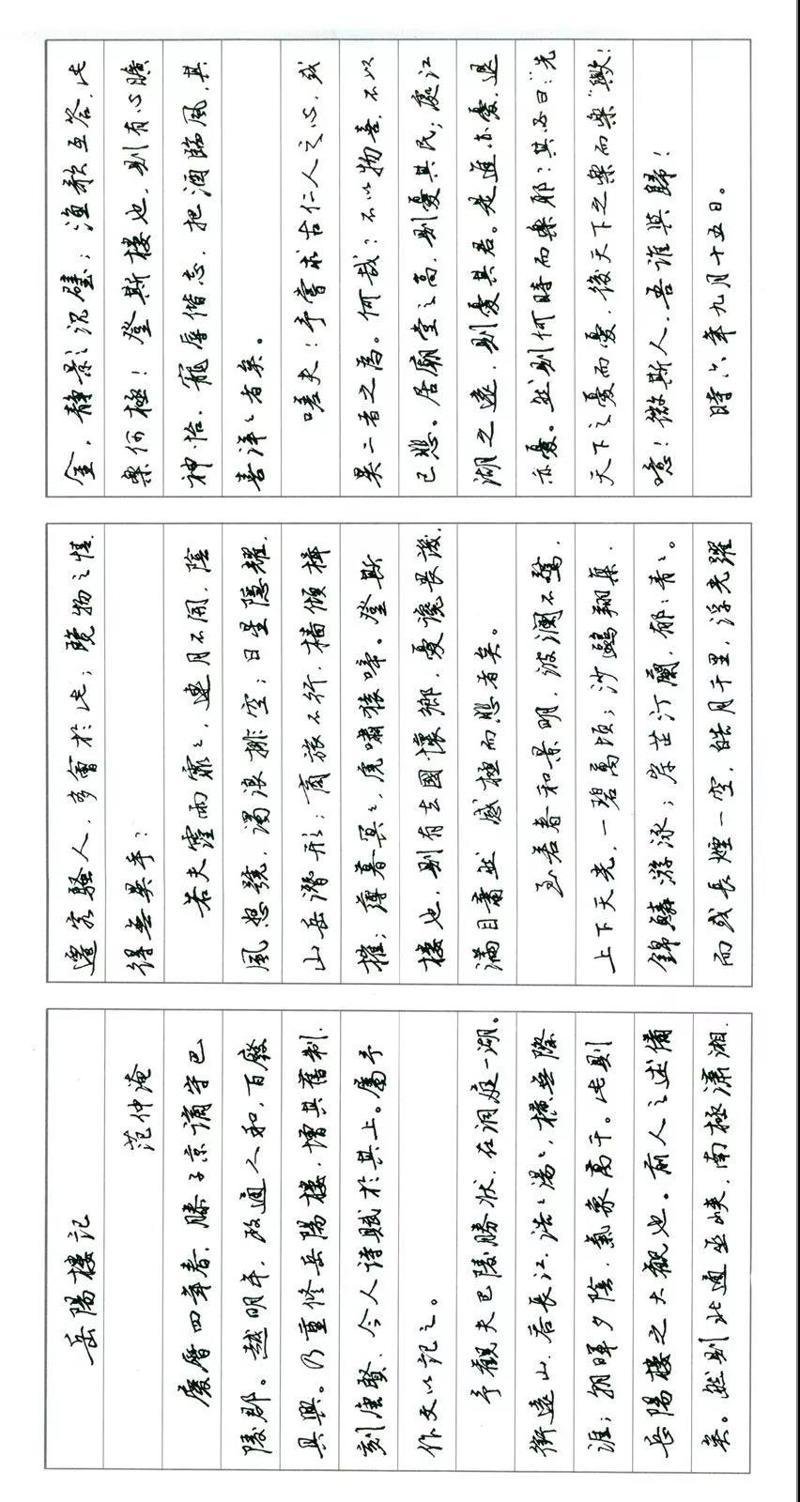 岳陽樓記
范仲淹
慶曆四年春，滕子京謫守巴
陵郡。越明年，政通人和，百廢
具興。乃重修岳陽樓，增其舊制，
刻唐賢、今人詩賦於其上。屬予
作文以記之。
予觀夫巴陵勝狀，在洞庭一湖。
銜遠山，吞長江，浩浩湯湯，橫無際
涯；朝暉夕陰，氣象萬千。此則
岳陽樓之大觀也。前人之述備
矣。然則北通巫峽，南極瀟湘，
遷客騷人，多會於此；覽物之情，
得無異乎？
若夫霪雨霏霏，連月不開，陰
風怒號，濁浪排空；日星隱耀，
山岳潛形；商旅不行，檣傾楫
摧；薄暮冥冥，虎嘯猿啼。登斯
樓也，則有去國懷鄉，憂讒畏譏，
滿目蕭然，感極而悲者矣。
至若春和景明，波瀾不驚，
上下天光，一碧萬頃；沙鷗翔集，
錦鱗游泳；岸芷汀蘭，郁郁青青。
而或長煙一空，皓月千里，浮光躍
金，靜影沉璧；漁歌互答，此
樂何極！登斯樓也，則有心曠
神怡，寵辱偕忘，把酒臨風，其
喜洋洋者矣。
嗟夫！予嘗求古仁人之心，或
異二者之為。何哉？不以物喜，不以
己悲。居廟堂之高，則憂其民；處江
湖之遠，則憂其君。是進亦憂，退
亦憂。然則何時而樂耶？其必曰“先
天下之憂而憂，後天下之樂而樂”歟！
噫！微斯人，吾誰與歸！
時六年九月十五日。